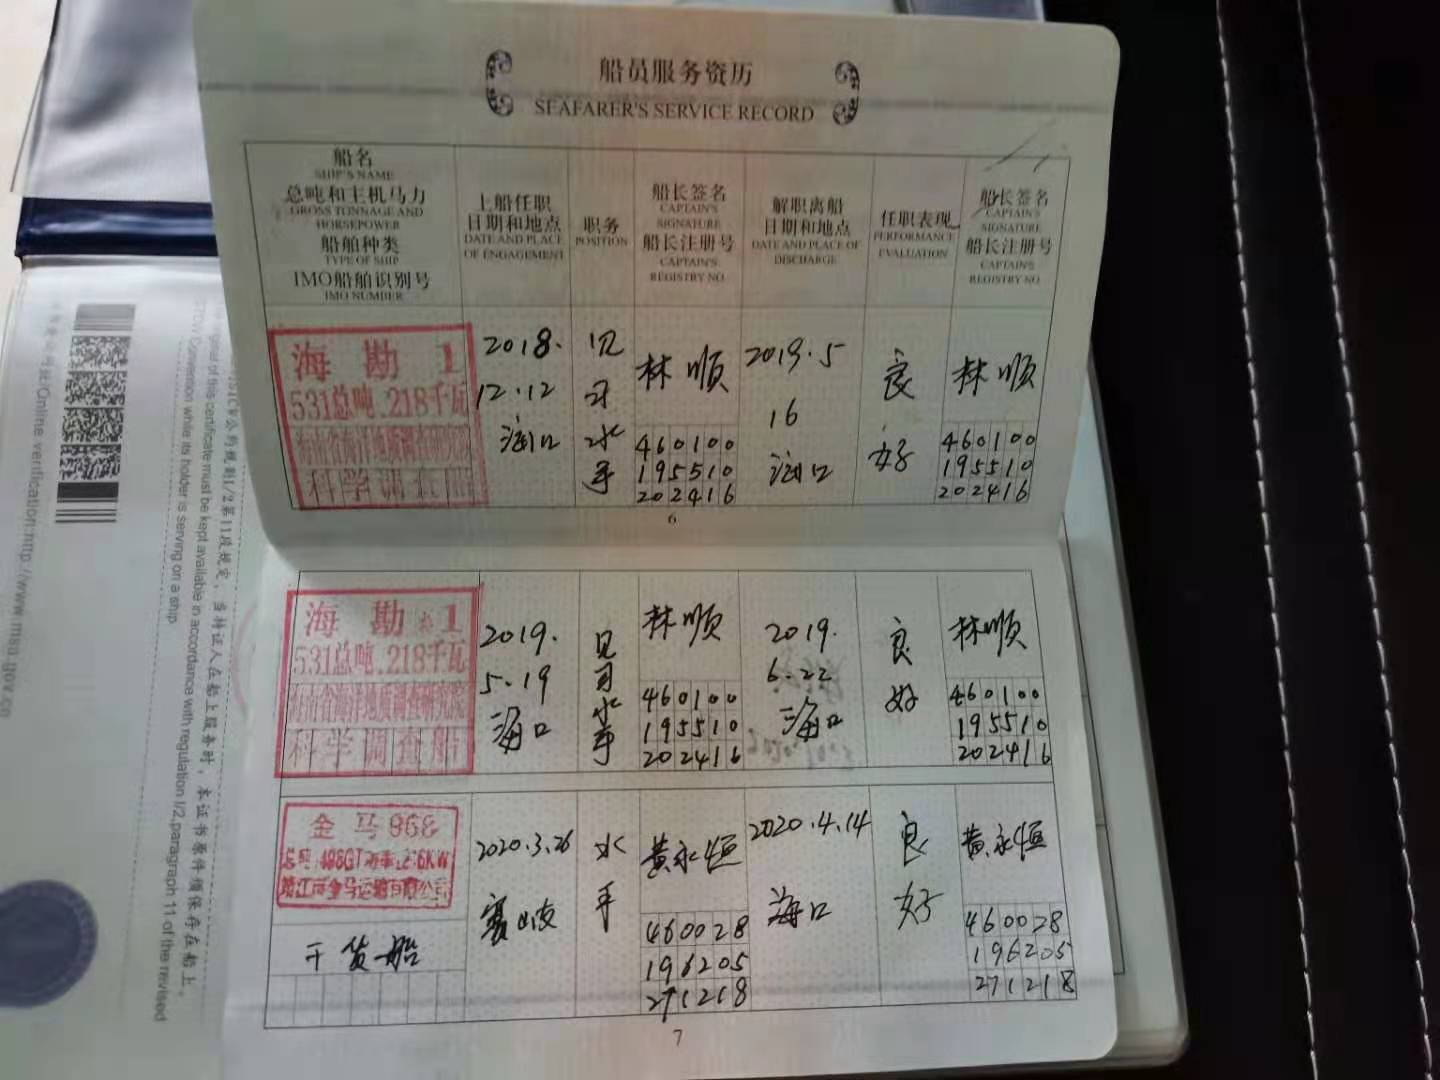 船员服务资历
SEAFARER'S SERVICE RECORD
船名
SHIP'S NAME
总吨和主机马力
GROSS TONNAGE AND
HORSEPOWER
船舶种类
TYPE OF SHIP
IMO船舶识别号
IMO NUMBER
上船任职
日期和地点
DATE AND PLACE
OF ENGAGEMENT
职务
POSITION
船长签名
CAPTAIN'S
SIGNATURE
船长注册号
CAPTAIN'S
REGISTRY NO.
解职离船
日期和地点
DATE AND PLACE OF
DISCHARGE
任职表现
PERFORMANCE
EVALUATION
船长签名
CAPTAIN'S
SIGNATURE
船长注册号
CAPTAIN'S
REGISTRY NO.
海勘1
531总吨.218千瓦
海南省海洋地质调查研究院
科学调查船
2018.
12.12
海口
见
习
水
手
林顺
460100
195510
202416
2019.5
16
海口
良
好
林顺
460100
195510
202416
6
海勘1
531总吨.218千瓦
海南省海洋地质调查研究院
科学调查船
2019.
5.19
海口
见
习
水
手
林顺
460100
195510
202416
2019.
6.22
海口
良
好
林顺
460100
195510
202416
金马968
干货船
2020.3.26
赛岐
水
手
黄永恒
460028
196205
271218
2020.4.14
海口
良
好
黄永恒
460028
196205
271218
7
STCW公约规则I/2第11段规定，当持证人在船上服务时，本证书原件须保存在船上。
original of this certificate must be kept available in accordance with regulation I/2,paragraph 11 of the revised
STCW Convention while its holder is serving on a ship
Online verification:http://www.msa.gov.cn